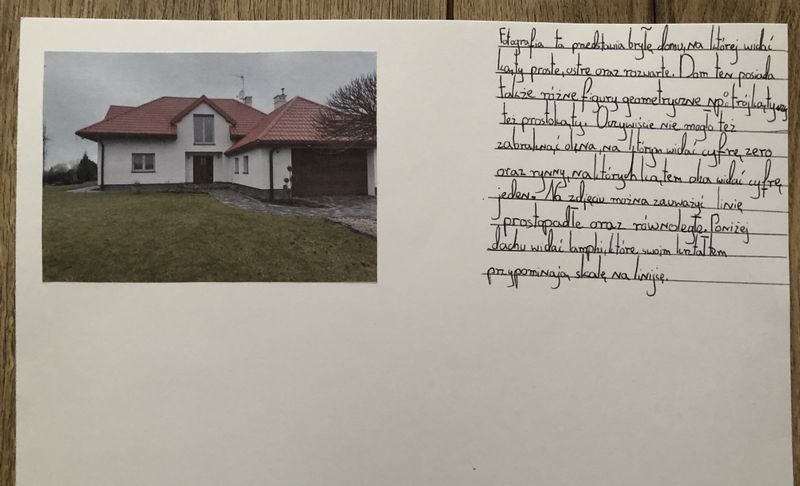 Fotografia ta przedstawia bryłę domu, na której widać
kąty proste, ostre oraz rozwarte. Dom ten posiada
także różne figury geometryczne np: trójkąty czy
też prostokąty. Oczywiście nie mogło też
zabraknąć okna, na którym widać cyfrę zero
oraz rynny, na których kątem oka widać cyfrę
jeden. Na zdjęciu można zauważyć linie
prostopadłe oraz równoległe. Poniżej
dachu widać lampki, które swoim kształtem
przypominają skalę na linijse.